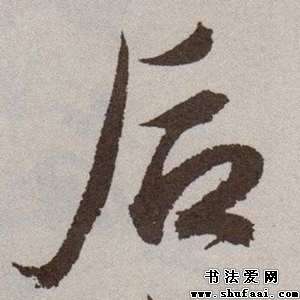 后
书法爱网
www.shufaai.com